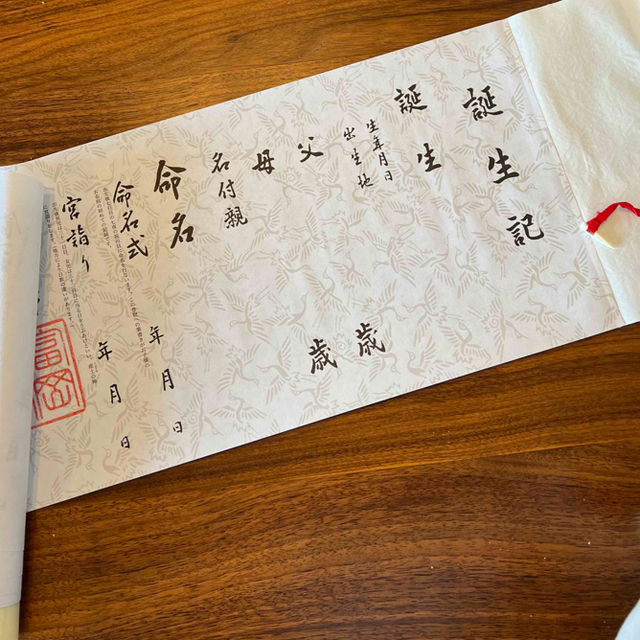 誕生記
誕生
生年月日
出生地
父 歳
母 歳
名付親
命名
命名式 年 月 日
宮詣り 年 月 日